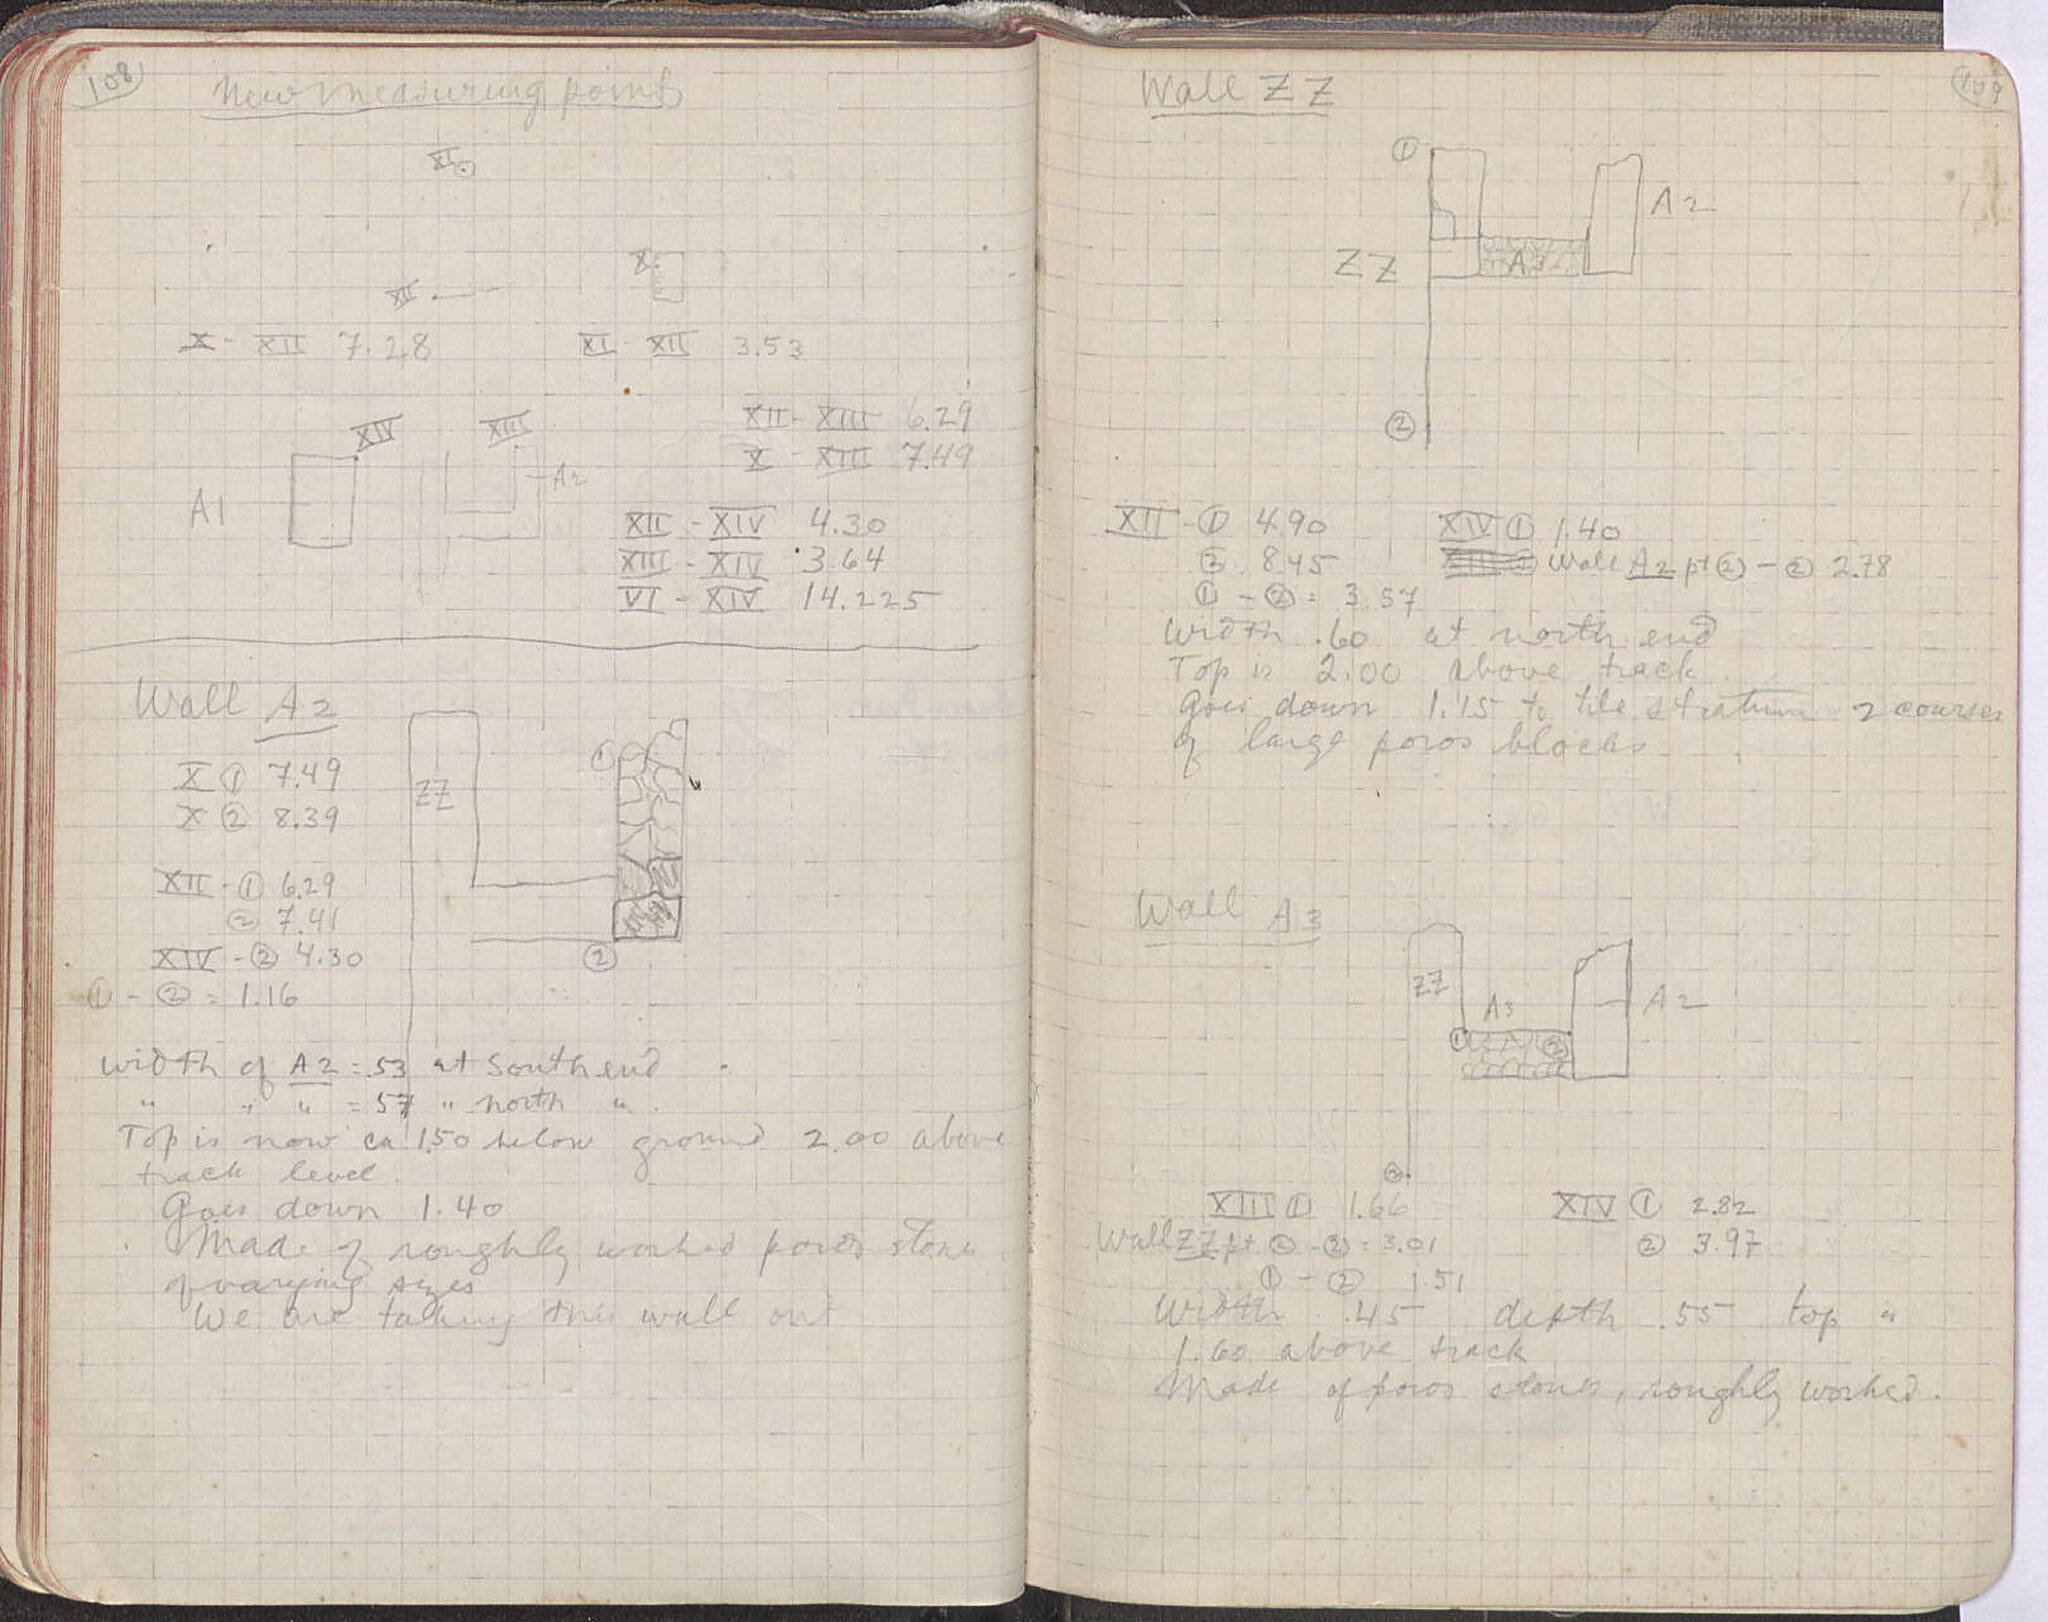 108
New measuring points
XI
X
XII
X - XII 7.28 XI - XII 3.53
XII - XIII 6.29
X - XIII 7.49
XIV XIII
A1 A2
XII - XIV 4.30
XIII - XIV 3.64
VI - XIV 14.225
Wall A2
ZZ
①
X ① 7.49
X ② 8.39
XII - ① 6.29
② 7.41
XIV - ② 4.30
②
① - ② = 1.16
Width of A2 = .53 at South end
" " " = 57 " north "
Top is now ca 1.50 below ground 2.00 above
track level.
Goes down 1.40
Made of roughly worked poros stones
of varying sizes
We are taking this wall out
109
Wall ZZ
①
A2
ZZ A3
②
XII - ① 4.90 XIV ① 1.40
② 8.45 Wall A2 pt ② - ② 2.78
① - ② = 3.57
Width .60 at north end
Top is 2.00 above track
Goes down 1.15 to tile stratum 2 courses
of large poros blocks
Wall A3
ZZ
A3 A2
① ②
②
XIII ① 1.66 XIV ① 2.82
Wall ZZ pt ② - ② = 3.01 ② 3.97
① - ② 1.51
Width .45 depth .55 top "
1.60 above track
Made of poros stones, roughly worked.